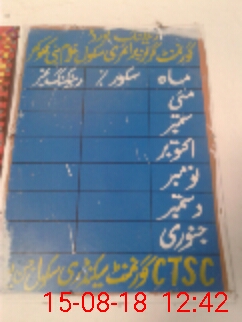 گورنمنٹ گرلز پرائمری سکول
ماہ سکور % رینکنگ نمبر
مئی
ستمبر
اکتوبر
نومبر
دسمبر
جنوری
CTSC گورنمنٹ سیکنڈری سکول
15-08-18 12:42